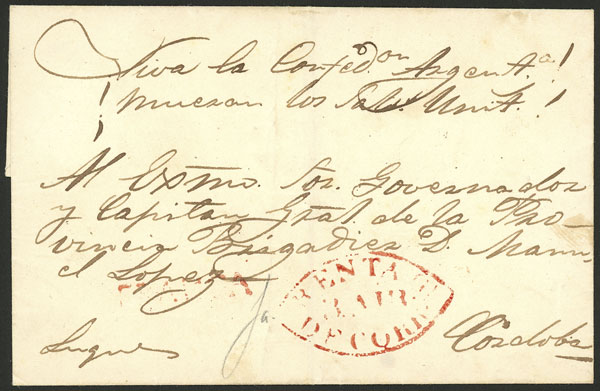 ¡Viva la Confed.on Argent.a!
¡mueran los Salv. Unit.s!
Al Exmo. Sor. Governador
y Capitan Gral de la Pro-
vincia Brigadier D. Manu-
el Lopez
RENTA
DE CORR
Cordoba
Luques